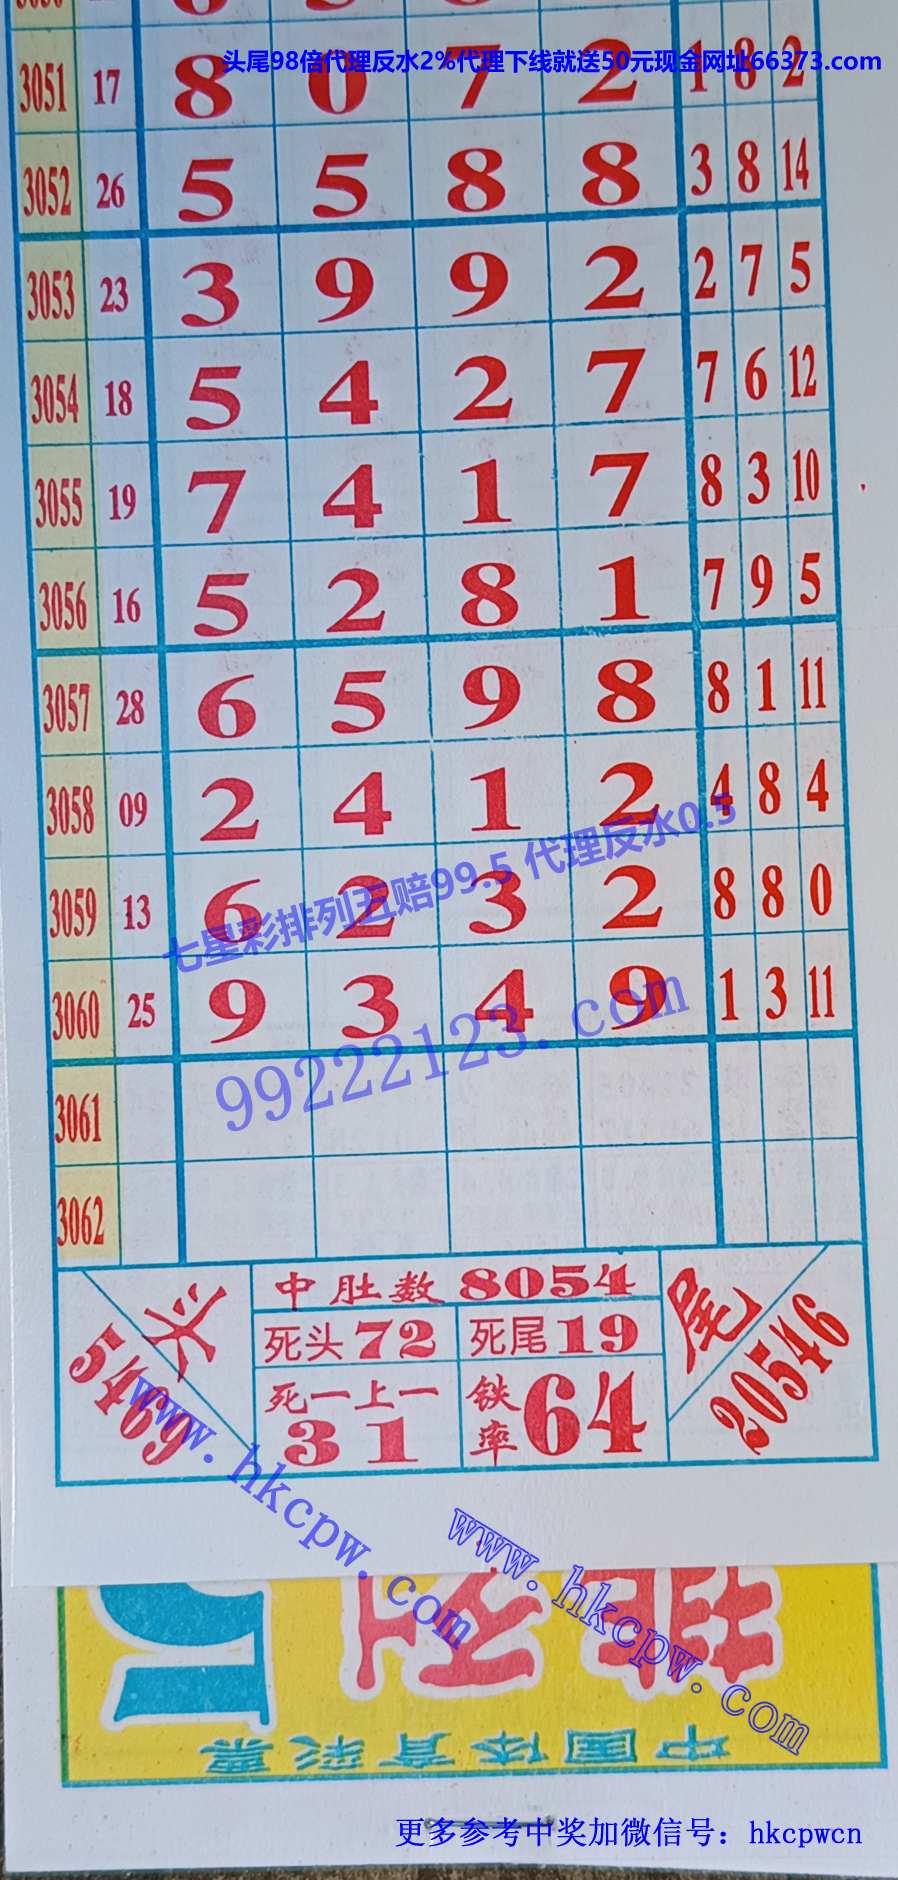 头尾98倍代理反水2%代理下线就送50元现金网址66373.com
3051 17 8 0 7 2 1 8 2
3052 26 5 5 8 8 3 8 14
3053 23 3 9 9 2 2 7 5
3054 18 5 4 2 7 7 6 12
3055 19 7 4 1 7 8 3 10
3056 16 5 2 8 1 7 9 5
3057 28 6 5 9 8 8 1 11
3058 09 2 4 1 2 4 8 4
3059 13 6 2 3 2 8 8 0
七星彩排列五赔99.5 代理反水0.5
3060 25 9 3 4 9 1 3 11
99222123.com
3061
3062
头
5469
中肚数 8054
死头 72
死尾 19
死一上一
31
铁率 64
尾
20546
www.hkcpw.com
www.hkcpw.com
排列5
中国体育彩票
更多参考中奖加微信号：hkcpwcn